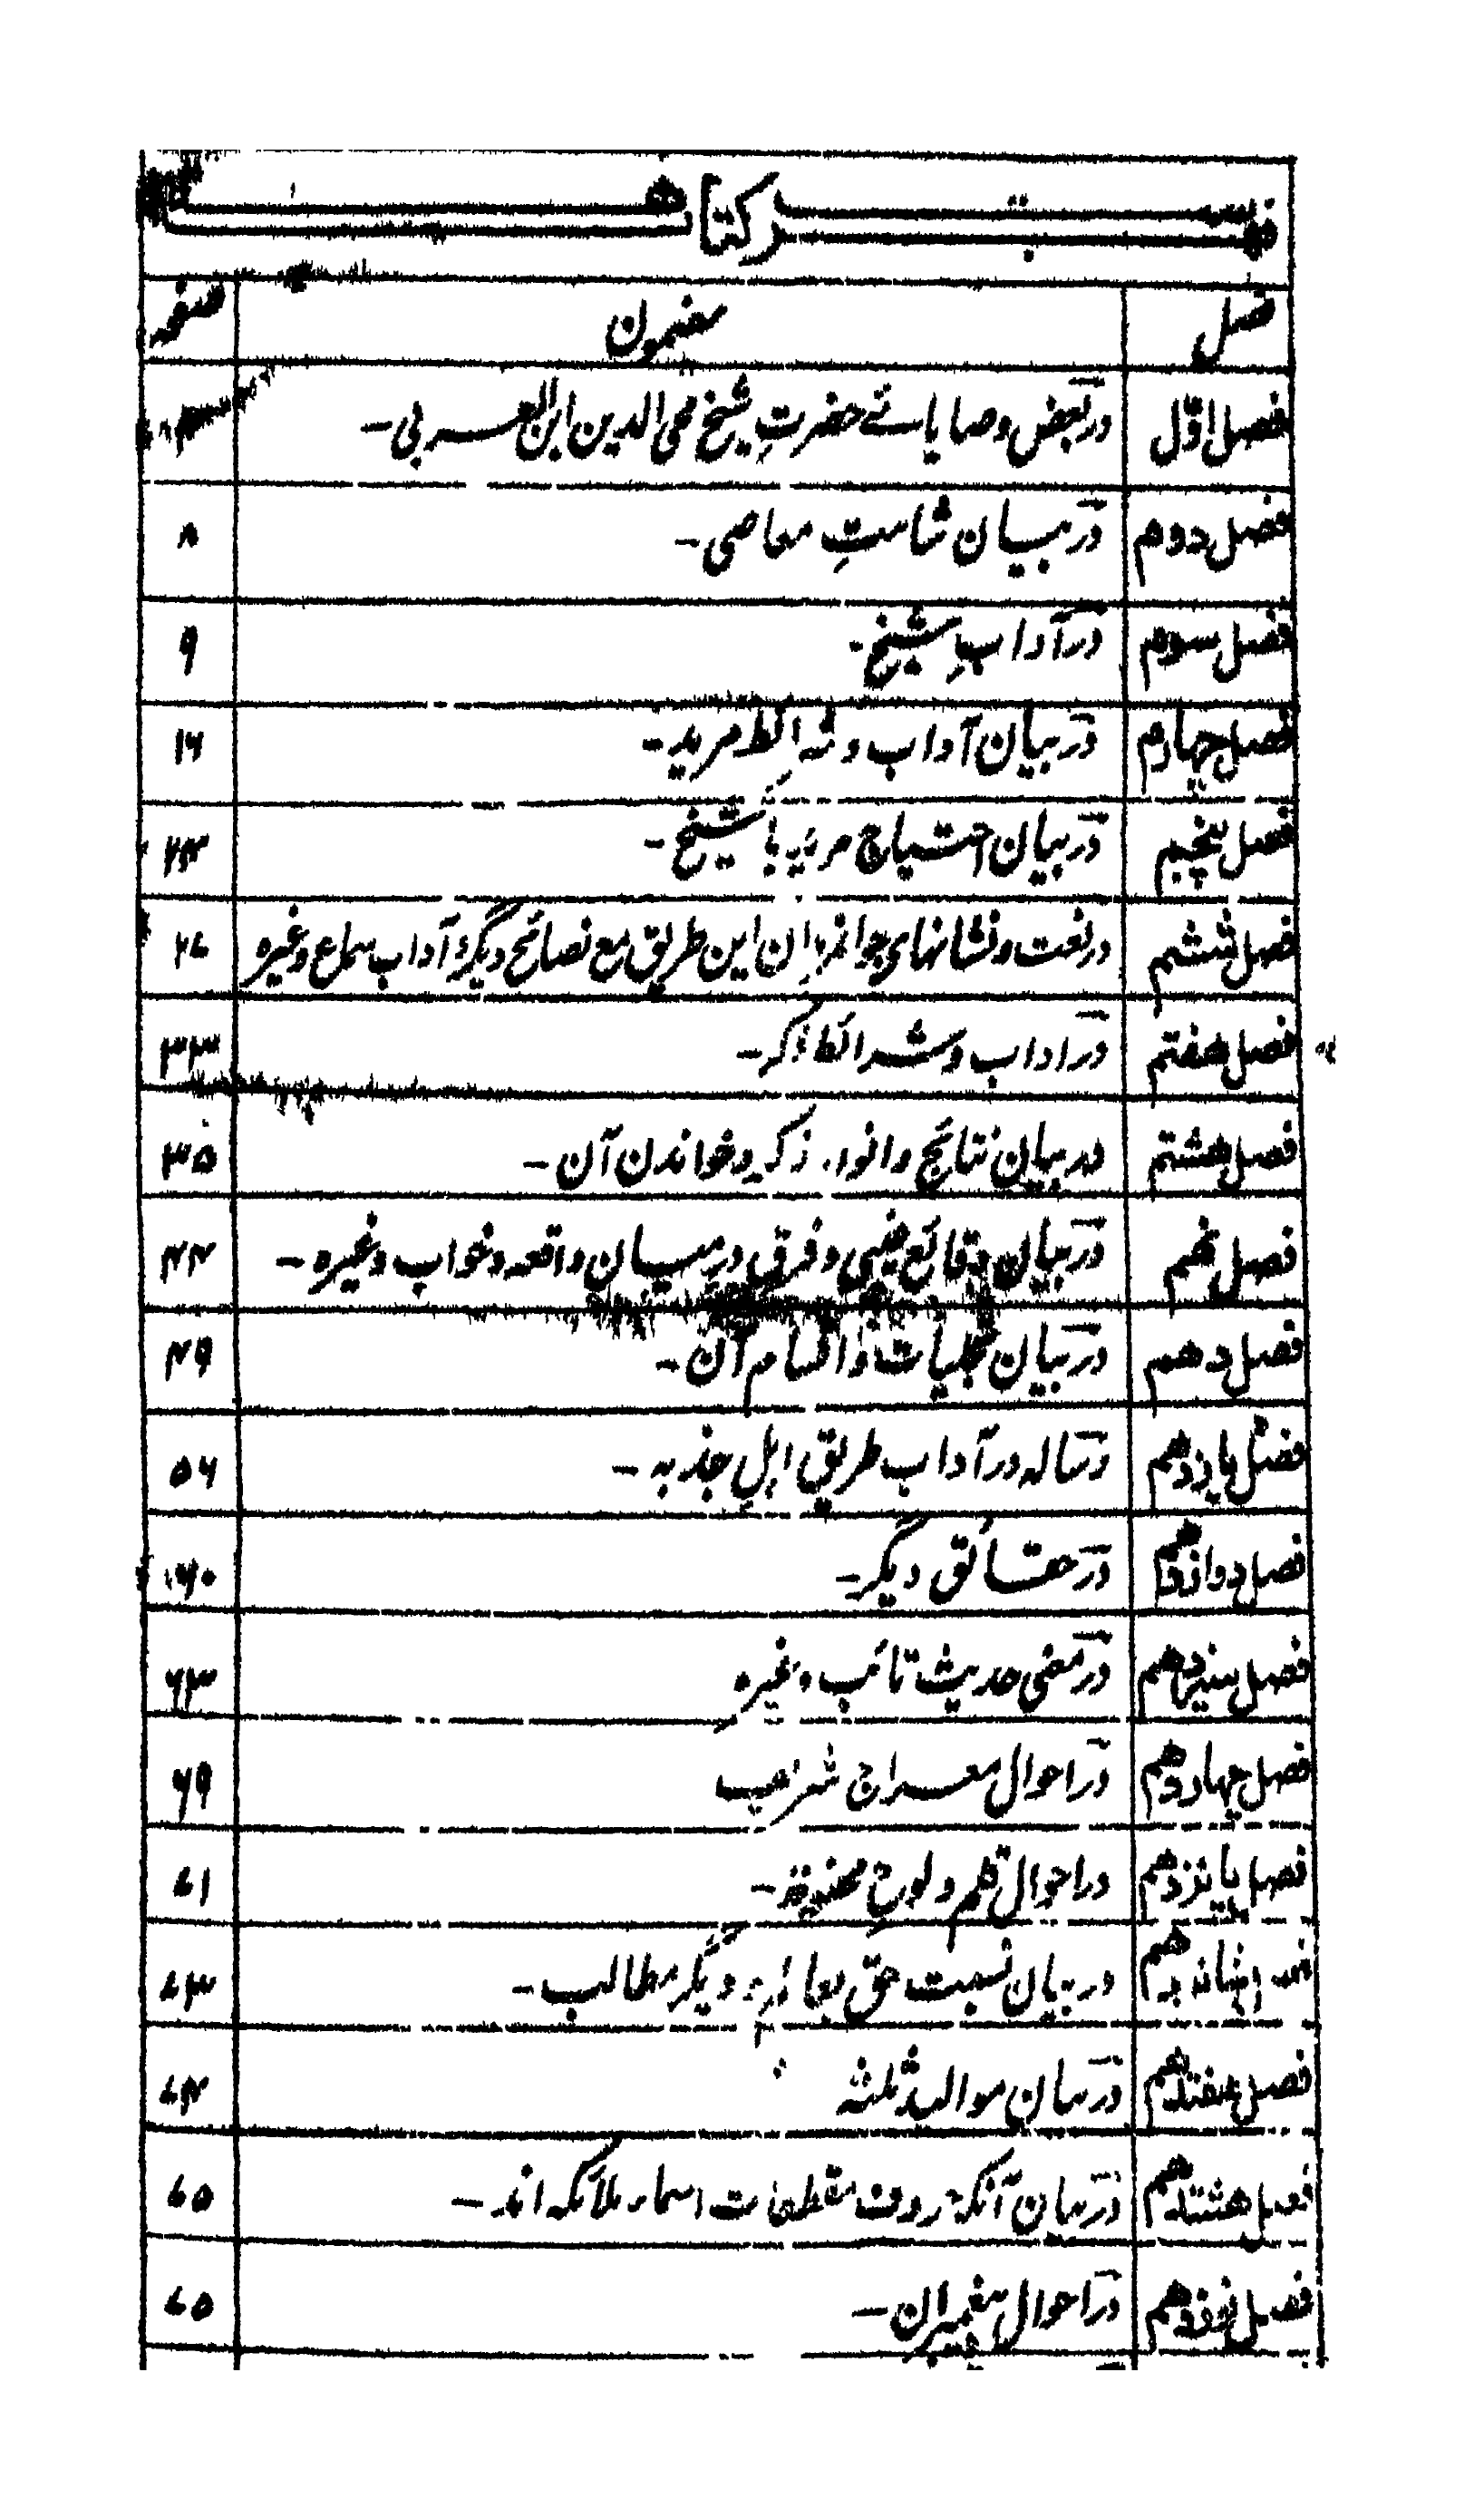 فہرست کتاب
فصل مضمون صفحہ
فصل اوّل در بعض وصایائے حضرتِ شیخ محی الدین ابن العربی۔
فصل دوم در بیان شامتِ معاصی۔ ۸
فصل سوم در آدابِ شیخ۔ ۹
فصل چهارم در بیان آداب و شرائط مرید۔ ۱۶
فصل پنجم در بیان احتیاج مرید با شیخ۔ ۲۴
فصل ششم در نعت و نشانهای جوانمردان این طریق مع نصائح دیگر و آداب سماع وغیرہ ۲۷
فصل هفتم در اداب و شرائط ذکر۔ ۳۳
فصل هشتم در بیان نتائج و انوار ذکر و خواندن آن۔ ۳۵
فصل نهم در بیان وقائع غیبی و فرق درمیان واقعہ و خواب وغیرہ۔ ۴۴
فصل دهم در بیان تجلیات و اقسام آن۔ ۴۹
فصل یازدهم رسالہ در آداب طریق اہلِ جذبہ۔ ۵۶
فصل دوازدهم در حقائق دیگر۔ ۶۰
فصل سیزدهم در معنی حدیث تائب وغیرہ ۶۳
فصل چهاردهم در احوال معراج شریف ۶۹
فصل پانزدهم در احوال قلم و لوح محفوظ۔ ۷۱
فصل شانزدهم در بیان نسبت حق دیگر مطالب۔ ۷۳
فصل هفتدهم در بیان موالید ثلثہ ۷۴
فصل هشتدهم در بیان آنکہ حروف مقطعات اسماء ملائکہ اند۔ ۷۵
فصل نوزدهم در احوال پیغمبران۔ ۷۵